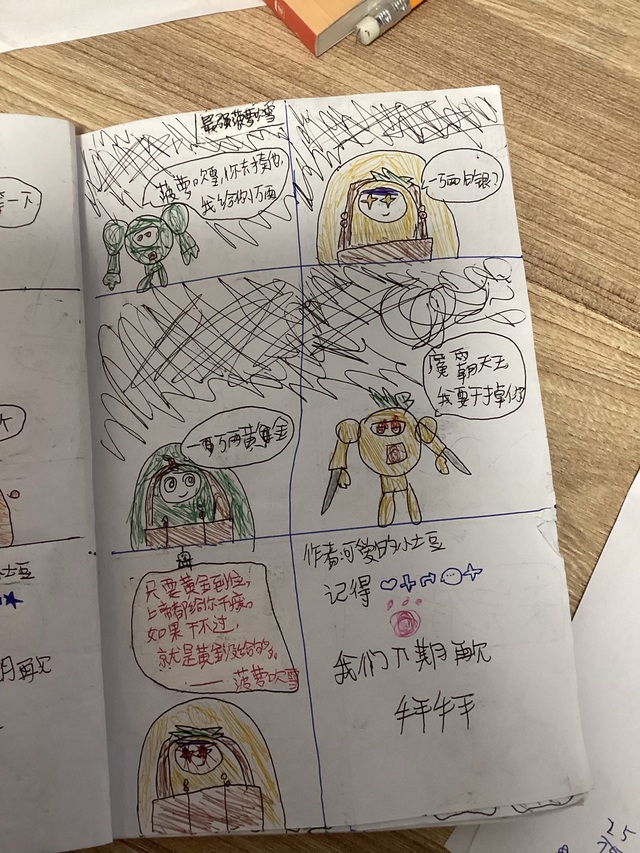 最强菠萝吹雪
菠萝吹雪,你去揍他,
我给你1万两
一万两白银?
1万两黄金
魔霸天王
我要干掉你
只要黄金到位,
上帝都给你干废。
如果干不过,
就是黄金没给够。
——菠萝吹雪
作者:可爱的小土豆
记得
我们下期再见
拜拜
一下
土豆
月再见
25